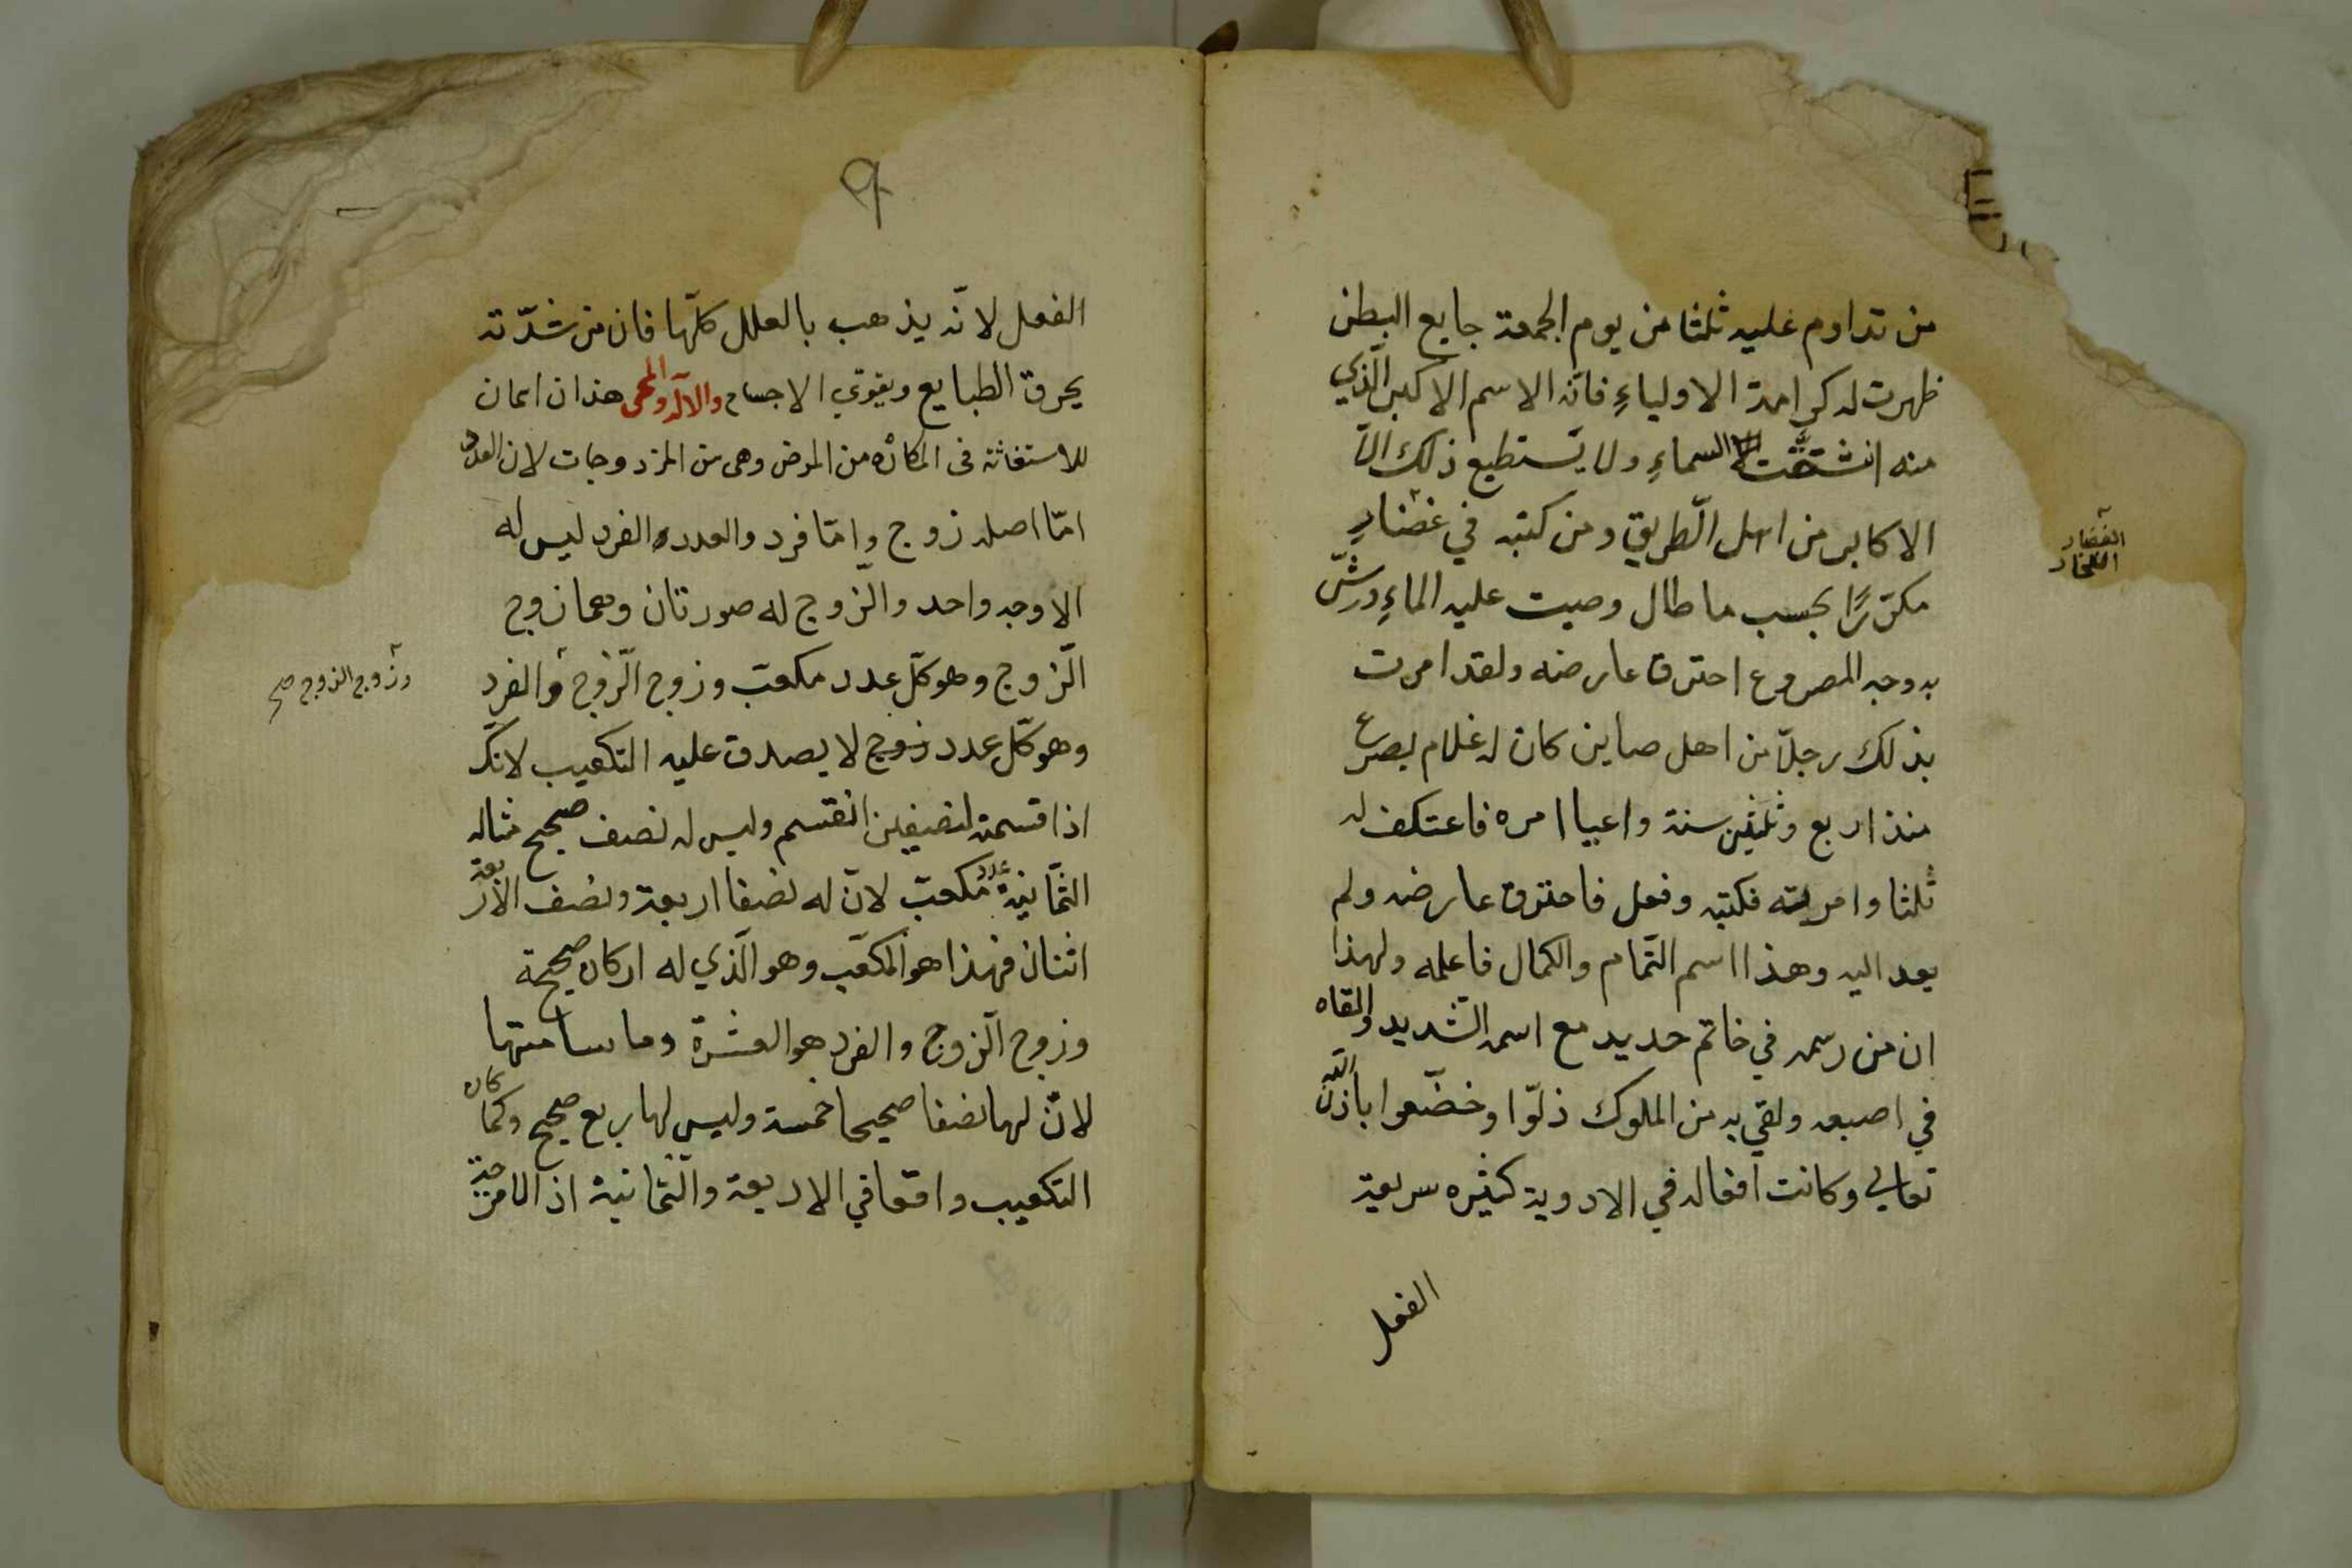 من تداوم عليه ثلثا من يوم الجمعة جايع البطن
ظهرت له كرامة الاولياءِ فانّه الاسم الاكبر الّذي
منه انشقّت السماءِ ولا يستطيع ذلك الّا
الاكابر من اهل الطّريق ومن كتبه في غضارِ
مكرّرًا بحسب ما طال وصبت عليه الماءِ ورشّ
به وجه المصروع احترق عارضه ولقد امرت
بذلك رجلاً من اهل صاين كان له غلام يصرع
منذ اربع وثلثين سنة واعيا امره فاعتكف له
ثلثا وامرته فكتبه وفعل فاحترق عارضه ولم
يعد اليه وهذا اسم التّمام والكمال فاعلمه ولهذا
ان من رسمه في خاتم حديد مع اسمه الشّديد والقاه
في اصبعه ولقي به من الملوك ذلّوا وخضّعوا باذن الله
تعالي وكانت افعاله في الادوية كثيره سريعة
الفعل
الغضار
الفخار
٩
الفعل لانّه يذهب بالعلل كلّها فان من شدّته
يحرق الطبايع ويقوّي الاجسام والالٓه والمحى هذان اسمان
للاستغاثة فى المكاره من المرض وهى من المزدوجات لان العدد
امّا اصله زوج وامّا فرد والعدد الفرد ليس له
الا وجه واحد والزّوج له صورتان وهما زوج
الّزوج وهو كلّ عدد مكعب وزوج الّزوج والفرد
وهو كلّ عدد زوج لا يصدق عليه التكعيب لانّك
اذا قسمته لنصيفين انقسم وليس له نصف صحيح مثاله
الثّمانية عدد مكعب لانّ له نصفا اربعة ونصف الاربعة
اثنان فهذا هو المكعّب وهو الّذي له اركان صحيحة
وزوج الّزوج والفرد هو العشرة وما سامتها
لانّ لها نصفا صحيحا خمسة وليس لها ربع صحيح وكما كان
التكعيب واقعا في الاربعة والثّمانية اذ الامزجة
وزوج الزوج صح